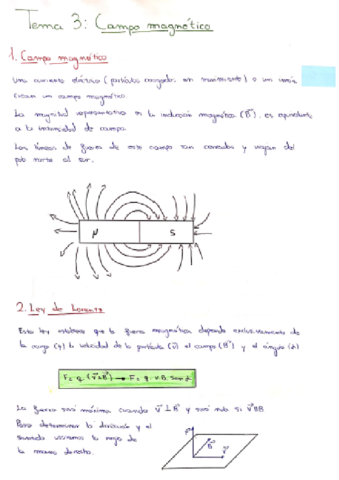 Tema 3: Campo magnético
1. Campo magnético
Una corriente eléctrica (partículas cargadas en movimiento) o un imán
crean un campo magnético.
La magnitud representativa es la inducción magnética (B⃗), es equivalente
a la intensidad de campo.
Las líneas de fuerza de este campo son cerradas y viajan del
polo norte al sur.
N S
2. Ley de Lorentz
Esta ley establece que la fuerza magnética depende exclusivamente de
la carga (q) la velocidad de la partícula (v⃗) el campo (B⃗) y el ángulo
F = q · (v⃗ × B⃗) → F = q · v · B · sen
La fuerza será máxima cuando v⃗ ⊥ B⃗ y será nula si v⃗ B
Para determinar la dirección y el
sentido usaremos la regla de
la mano derecha.
F B⃗ v⃗